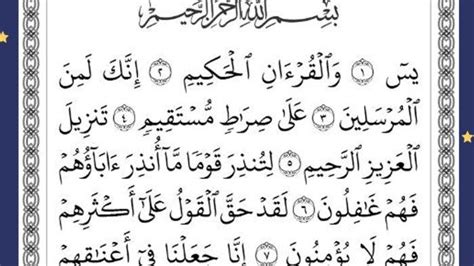 بِسْمِ اللَّهِ الرَّحْمَٰنِ الرَّحِيمِ
يسٓ ۝١ وَالْقُرْءَانِ الْحَكِيمِ ۝٢ إِنَّكَ لَمِنَ
الْمُرْسَلِينَ ۝٣ عَلَىٰ صِرَاطٍ مُّسْتَقِيمٍ ۝٤ تَنزِيلَ
الْعَزِيزِ الرَّحِيمِ ۝٥ لِتُنذِرَ قَوْمًا مَّآ أُنذِرَ ءَابَآؤُهُمْ
فَهُمْ غَٰفِلُونَ ۝٦ لَقَدْ حَقَّ الْقَوْلُ عَلَىٰٓ أَكْثَرِهِمْ
فَهُمْ لَا يُؤْمِنُونَ ۝٧ إِنَّا جَعَلْنَا فِىٓ أَعْنَٰقِهِمْ